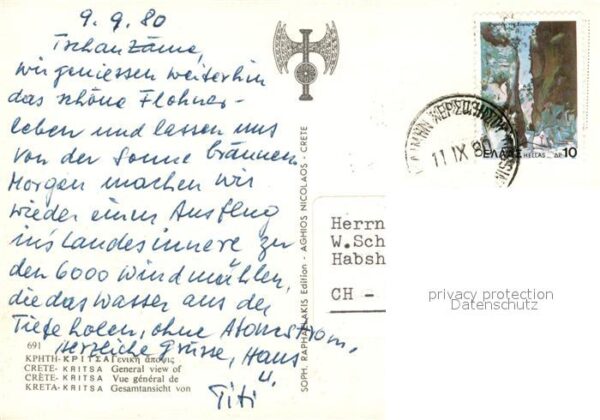 9. 9. 80
Tschau Zäme,
wir geniessen weiterhin
das schöne Flohner-
leben und lassen uns
von der Sonne bräunen.
Morgen machen wir
wieder einen Ausflug
ins Landesinnere zu
den 6000 Windmühlen,
die das Wasser aus der
Tiefe holen, ohne Atomstrom.
Herzliche Grüsse, Hans
u.
Titi
691
ΚΡΗΤΗ- ΚΡΙΤΣΑ Γενική άποψις
CRETE- KRITSA General view of
CRÈTE- KRITSA Vue général de
KRETA- KRITSA Gesamtansicht von
SOPH. RAPHAELAKIS Edition - AGHIOS NICOLAOS - CRETE
ΕΛΛΑΣ HELLAS ΔΡ 10
11 IX 80
Herrn
W.Sch
Habsh
CH -
privacy protection
Datenschutz